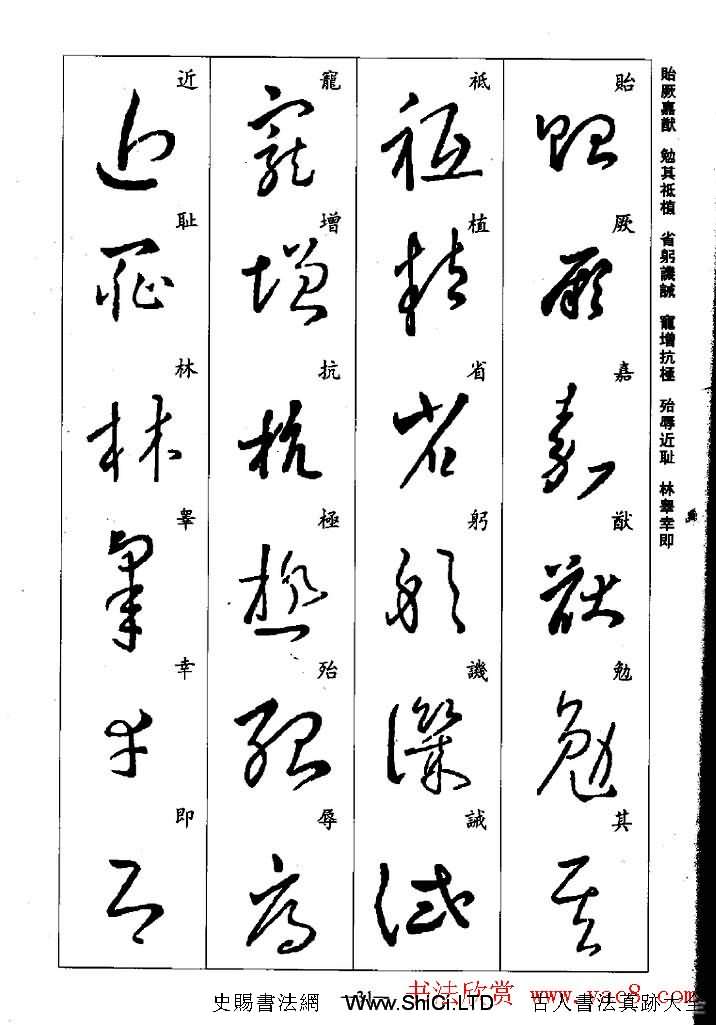 貽厥嘉猷 勉其祗植 省躬譏誡 寵增抗極 殆辱近耻 林睾幸即
貽厥嘉猷勉其
祗植省躬譏誡
寵增抗極殆辱
近耻林睾幸即
31
书法欣赏 www.yac8.com
史賜書法網 www.ShiCi.LTD 古人書法真跡大全